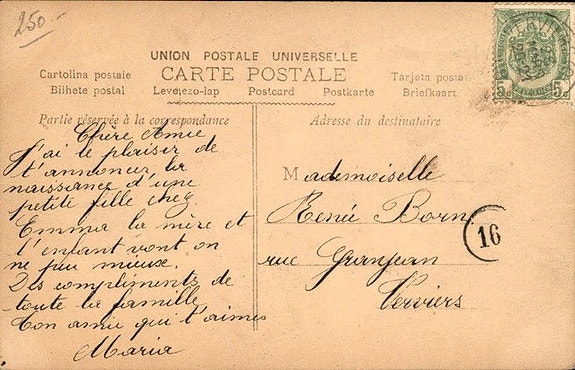 250.
UNION POSTALE UNIVERSELLE
CARTE POSTALE
Cartolina postale Tarjeta postal
Bilhete postal Levelezo-lap Postcard Postkarte Briefkaart
Partie réservée à la correspondance
Adresse du destinataire
Chère Amie
J'ai le plaisir de
t'annoncer la
naissance d'une
petite fille chez
Emma la mère et
l'enfant vont on
ne peu mieuse.
Des compliments de
toute la famille
Ton amie qui t'aimes
Maria
Mademoiselle
Renée Born
rue Granjean
Verviers
16
5c 5c